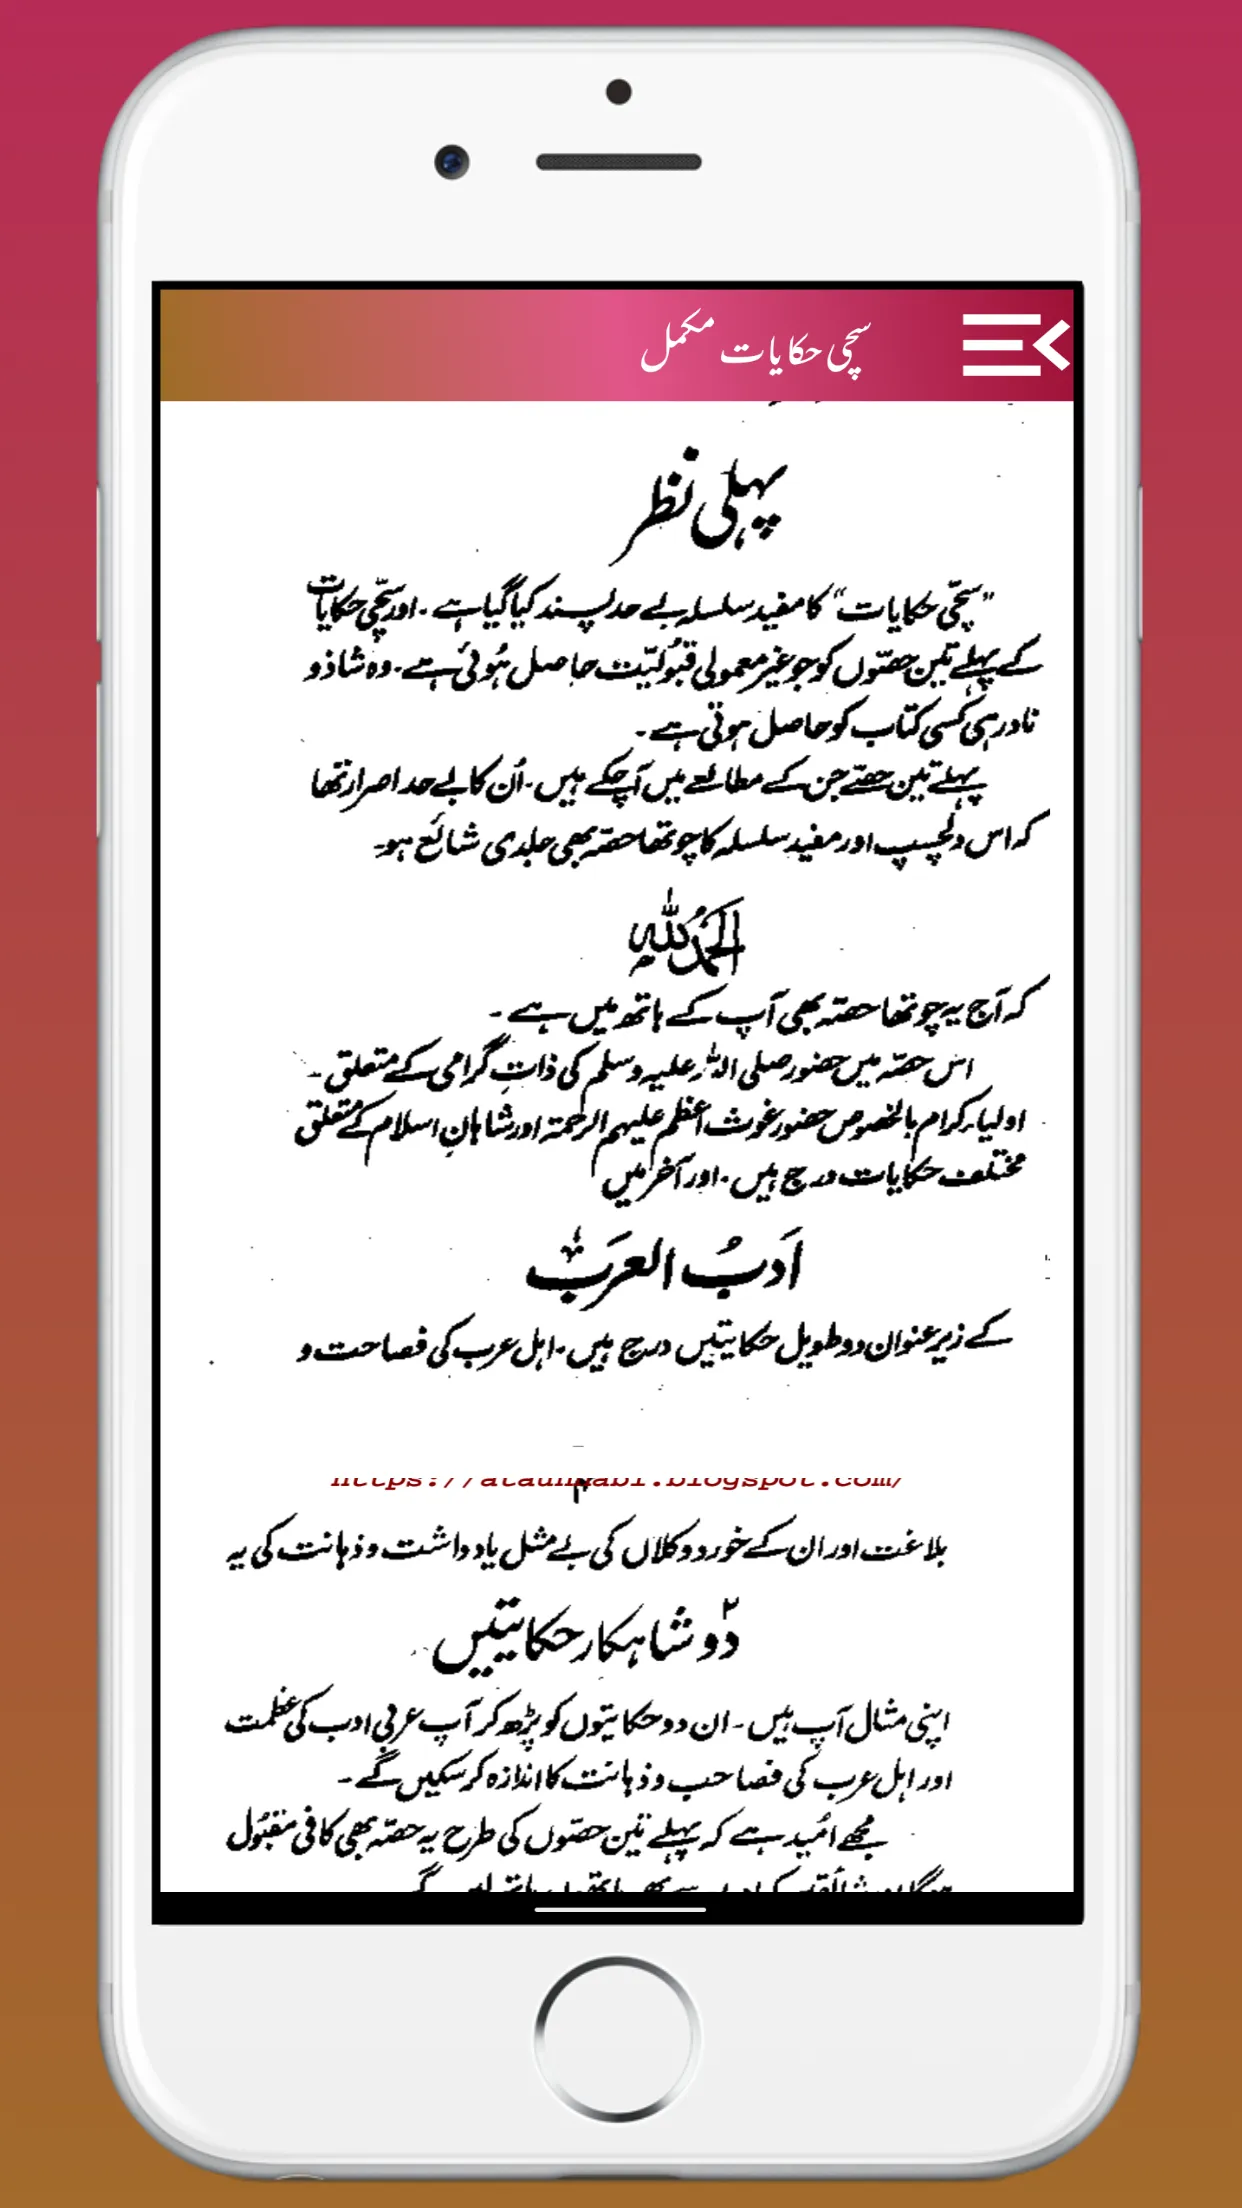 سچی حکایات مکمل
پہلی نظر
"سچّی حکایات" کا مفید سلسلہ بے حد پسند کیا گیا ہے۔ اور سچّی حکایات
کے پہلے تین حصّوں کو جو غیر معمولی قبُولیّت حاصل ہُوئی ہے۔ وہ شاذ و
نادر ہی کسی کتاب کو حاصل ہوتی ہے۔
پہلے تین حصّے جن کے مطالعے میں آ چکے ہیں۔ اُن کا بے حد اصرار تھا
کہ اس دلچسپ اور مفید سلسلہ کا چوتھا حصّہ بھی جلدی شائع ہو۔
الحمدُ للہِ
کہ آج یہ چوتھا حصّہ بھی آپ کے ہاتھ میں ہے۔
اس حصّہ میں حضور صلی اللہ علیہ وسلم کی ذاتِ گرامی کے متعلق۔
اولیاء کرام بالخصوص حضور غوث اعظم علیہم الرحمۃ اور شاہانِ اسلام کے متعلق
مختلف حکایات درج ہیں۔ اور آخر میں
اَدبُ العرَب
کے زیر عنوان دو طویل حکایتیں درج ہیں۔ اہل عرب کی فصاحت و
https://ataunnabi.blogspot.com/
۴
بلاغت اور ان کے خورد و کلاں کی بے مثل یادداشت و ذہانت کی یہ
دو شاہکار حکایتیں
اپنی مثال آپ ہیں۔ ان دو حکایتوں کو پڑھ کر آپ عربی ادب کی عظمت
اور اہل عرب کی فصاحت و ذہانت کا اندازہ کر سکیں گے۔
مجھے اُمید ہے کہ پہلے تین حصّوں کی طرح یہ حصّہ بھی کافی مقبُول